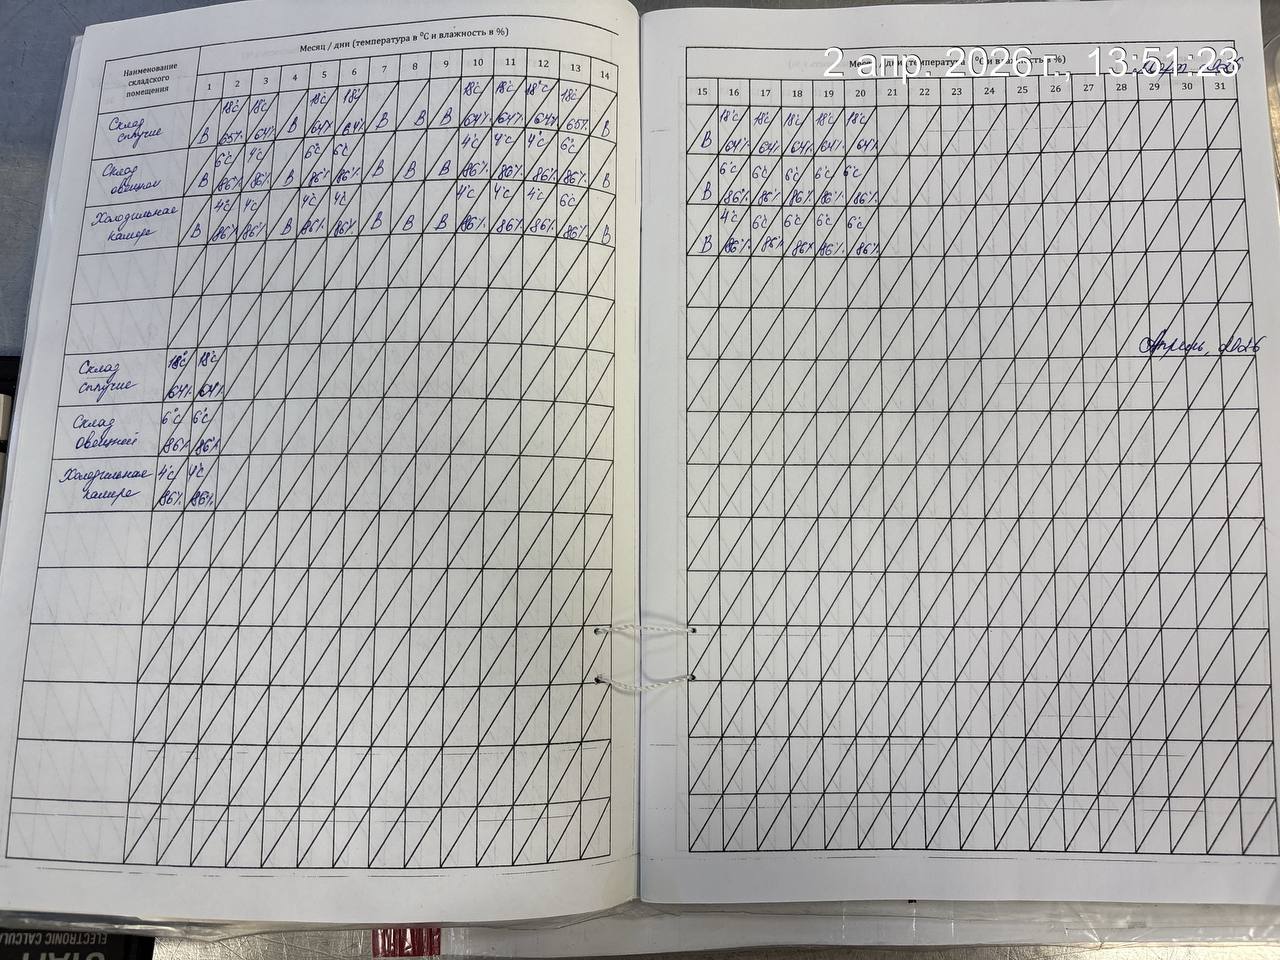 Месяц / дни (температура в ⁰С и влажность в %)
Наименование складского помещения
1 2 3 4 5 6 7 8 9 10 11 12 13 14
Склад сыпучие
18°С 18°С 18°С 18°С 18°С 18°С 18°С 18°С
В 65% 64% В 64% 64% В В В 64% 64% 64% 65% В
Склад овощной
6°С 4°С 6°С 6°С 4°С 4°С 4°С 6°С
В 86% 86% В 86% 86% В В В 86% 86% 86% 86% В
Холодильная камера
4°С 4°С 4°С 4°С 4°С 4°С 4°С 6°С
В 86% 86% В 86% 86% В В В 86% 86% 86% 86% В
Склад сыпучие
18°С 18°С
64% 64%
Склад овощной
6°С 6°С
86% 86%
Холодильная камера
4°С 4°С
86% 86%
2 апр. 2026 г., 13:51:23
Месяц / дни (температура в ⁰С и влажность в %)
15 16 17 18 19 20 21 22 23 24 25 26 27 28 29 30 31
18°С 18°С 18°С 18°С 18°С
В 64% 64% 64% 64% 64%
6°С 6°С 6°С 6°С 6°С
В 86% 86% 86% 86% 86%
4°С 6°С 6°С 6°С 6°С
В 86% 86% 86% 86% 86%
Апрель, 2026
ELECTRONIC CALCUL